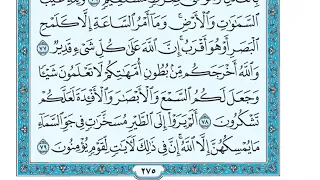 السَّمَٰوَٰتِ وَالْأَرْضِ وَمَآ أَمْرُ السَّاعَةِ إِلَّا كَلَمْحِ
الْبَصَرِ أَوْ هُوَ أَقْرَبُ إِنَّ اللَّهَ عَلَىٰ كُلِّ شَيْءٍ قَدِيرٌ ٧٧
وَاللَّهُ أَخْرَجَكُم مِّنۢ بُطُونِ أُمَّهَٰتِكُمْ لَا تَعْلَمُونَ شَيْـًٔا
وَجَعَلَ لَكُمُ السَّمْعَ وَالْأَبْصَٰرَ وَالْأَفْـِٔدَةَ لَعَلَّكُمْ
تَشْكُرُونَ ٧٨ أَلَمْ يَرَوْا إِلَى الطَّيْرِ مُسَخَّرَٰتٍ فِي جَوِّ السَّمَآءِ
مَا يُمْسِكُهُنَّ إِلَّا اللَّهُ إِنَّ فِي ذَٰلِكَ لَءَايَٰتٍ لِّقَوْمٍ يُؤْمِنُونَ ٧٩
٢٧٥